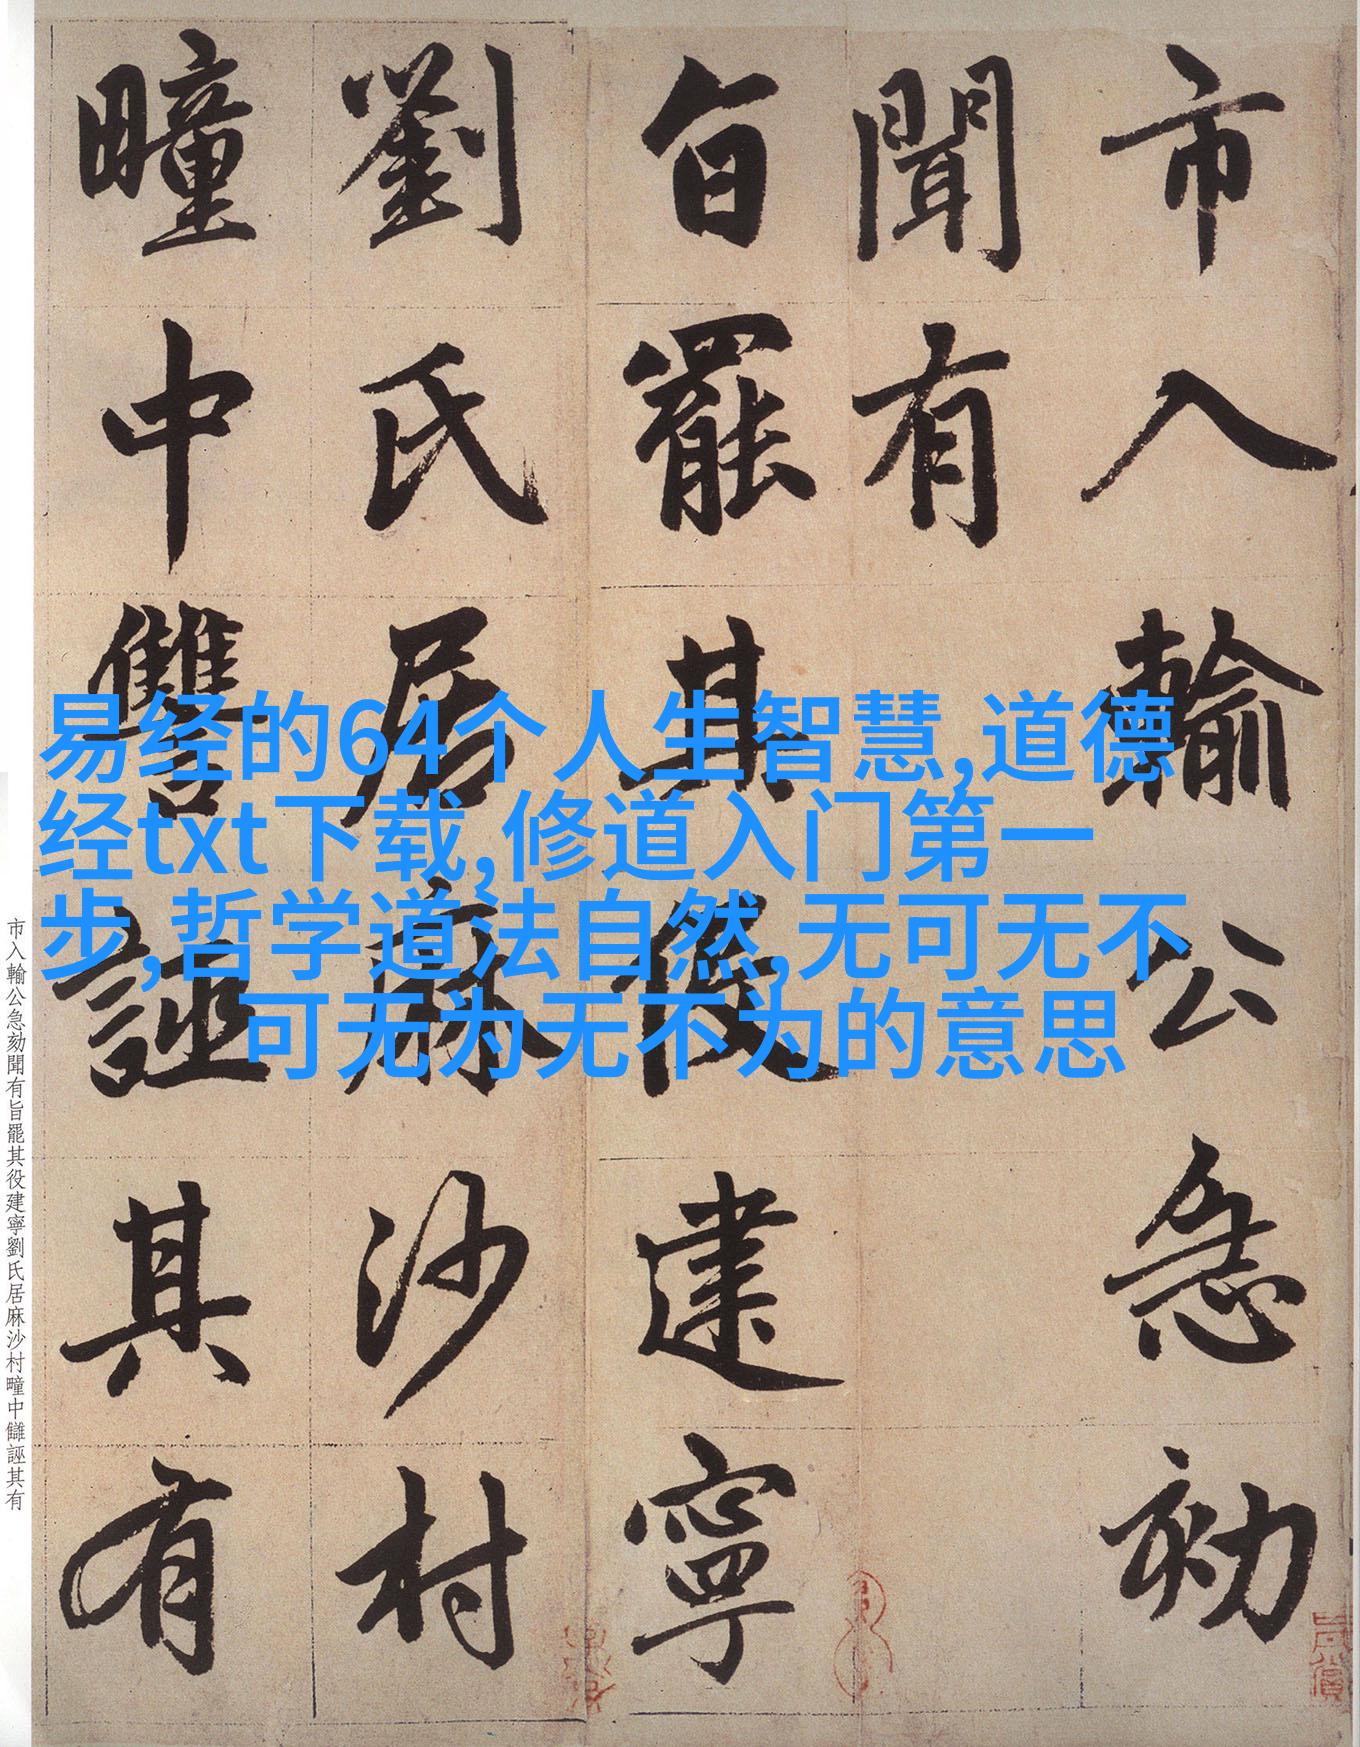 市入輸公急劾
聞有
旨罷其役建寧
劉氏居麻沙村
疃中讐誣其有
易经的64个人生智慧,道德
经txt下载,修道入门第一
步,哲学道法自然,无可无不
可无为无不为的意思
市入輸公急劾聞有旨罷其役建寧劉氏居麻沙村疃中讎誣其有